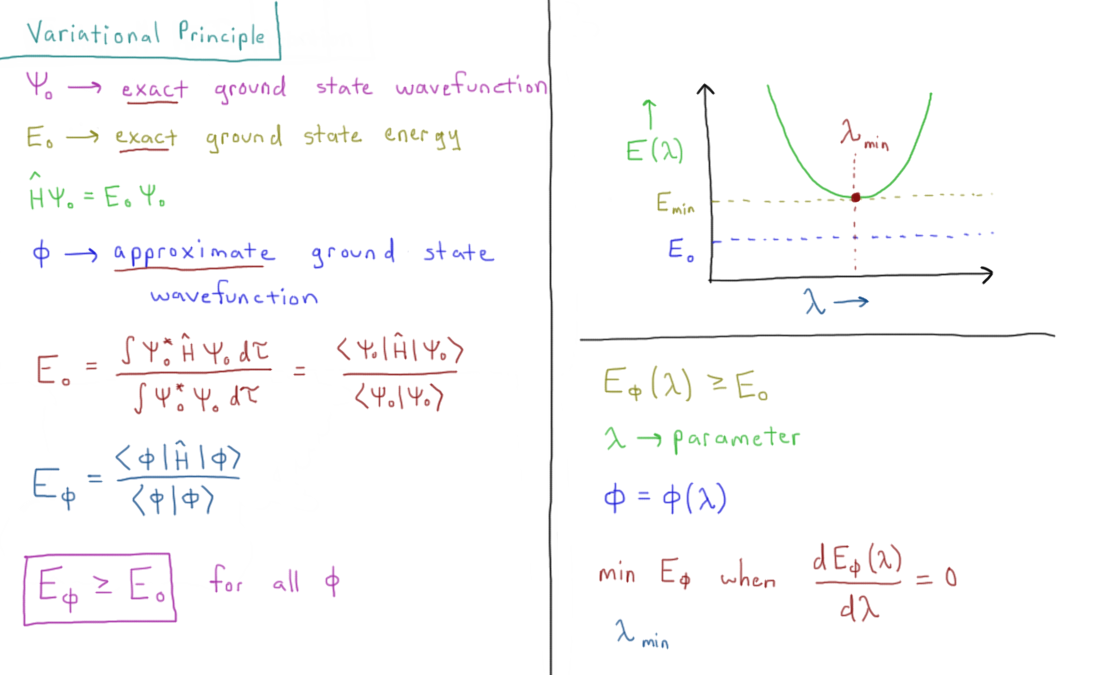 Variational Principle
Ψ₀ → exact ground state wavefunction
E₀ → exact ground state energy
ĤΨ₀ = E₀Ψ₀
ϕ → approximate ground state
wavefunction
E₀ = ∫Ψ₀* Ĥ Ψ₀ dτ / ∫Ψ₀* Ψ₀ dτ = ⟨Ψ₀|Ĥ|Ψ₀⟩ / ⟨Ψ₀|Ψ₀⟩
E_ϕ = ⟨ϕ|Ĥ|ϕ⟩ / ⟨ϕ|ϕ⟩
E_ϕ ≥ E₀ for all ϕ
↑
E(λ)
λ min
E min
E₀
λ →
E_ϕ(λ) ≥ E₀
λ → parameter
ϕ = ϕ(λ)
min E_ϕ when dE_ϕ(λ) / dλ = 0
λ min